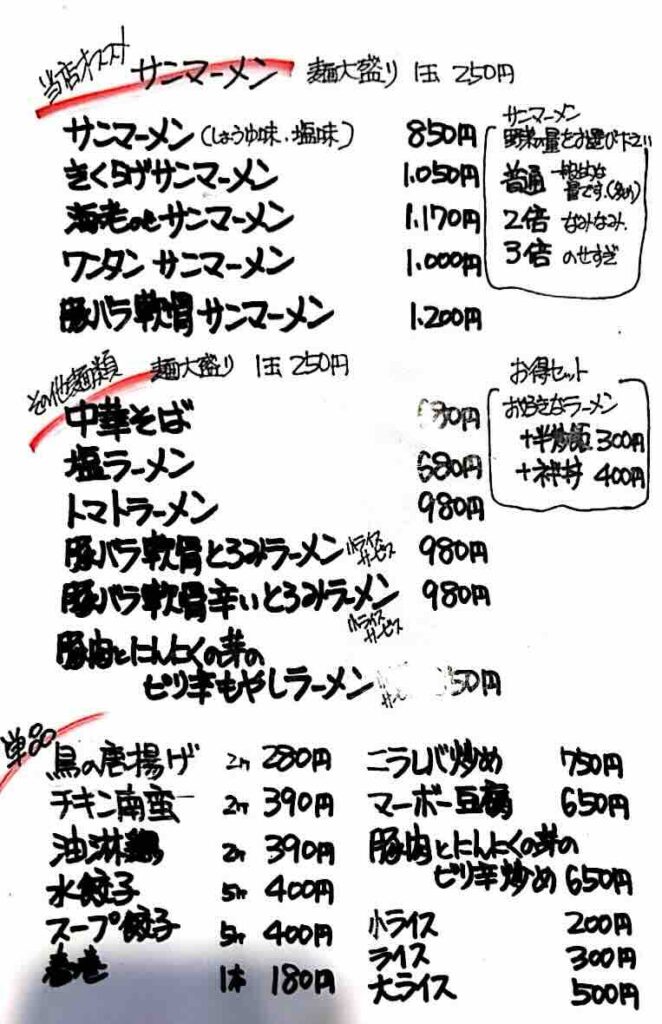 当店オススメ
サンマーメン 麺大盛り 1玉 250円
サンマーメン(しょうゆ味、塩味) 850円
きくタゲサンマーメン 1.050円
海老のせサンマーメン 1.170円
ワンタン サンマーメン 1.000円
豚バラ軟骨サンマーメン 1.200円
サンマーメン
野菜の量をお選び下さい
普通 一般的な
量です。(多め)
2倍 なみなみ。
3倍 のせすぎ
その他麺類 麺大盛り 1玉 250円
中華そば
塩ラーメン 680円
トマトラーメン 980円
豚バラ軟骨とろみラーメン 小ライスサービス 980円
豚バラ軟骨辛いとろみラーメン 980円
小ライスサービス
豚肉とにんにくの芽の
ピリ辛もやしラーメン
お得セット
お好きなラーメン
+半炒飯 300円
+ネギ丼 400円
単品
鳥の唐揚げ 2ケ 280円
チキン南蛮 2ケ 390円
油淋鶏 2ケ 390円
水餃子 5ケ 400円
スープ餃子 5ケ 400円
春巻 1本 180円
ニラレバ炒め 750円
マーボー豆腐 650円
豚肉とにんにくの芽の
ピリ辛炒め 650円
小ライス 200円
ライス 300円
大ライス 500円